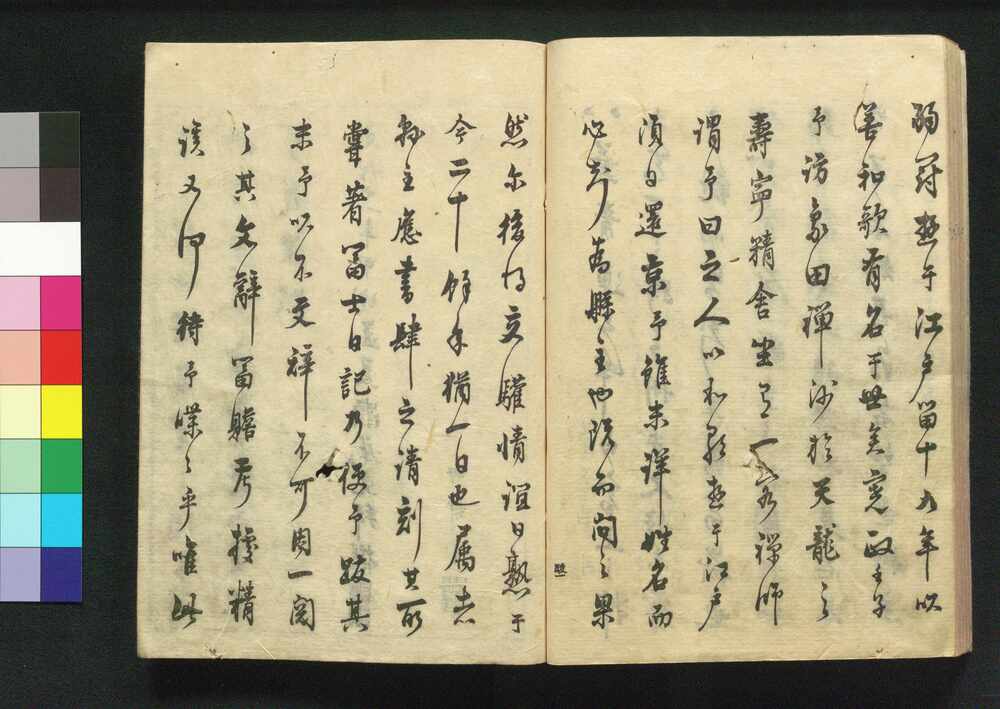 弱冠遊于江戸留十九年以
善和歌有名于世矣寛政壬子
予訪象田禅師於天龍之
壽寧精舍坐有一客禅師
謂予曰之人以和歌遊于江戸
須日還京予雖未詳姓名而
心异為縣主也既而問之果
然尓後得交驩情誼日熟于
今二十餘年猶一日也属者
縣主應書肆之請刻其所
嘗著冨士日記乃使予跋其
末予以不文辞不可因一閲
之其文辭冨贍考據精
該又何待予喋々乎唯此